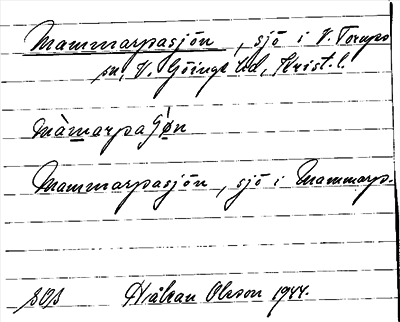 Mammarpasjön, sjö i V. Torups
sn, V. Göinge hd, Krist. l.
màmarpaʃǿn
Mammarpasjön, sjö i Mammarp.
SOS Håkan Olsson 1944.